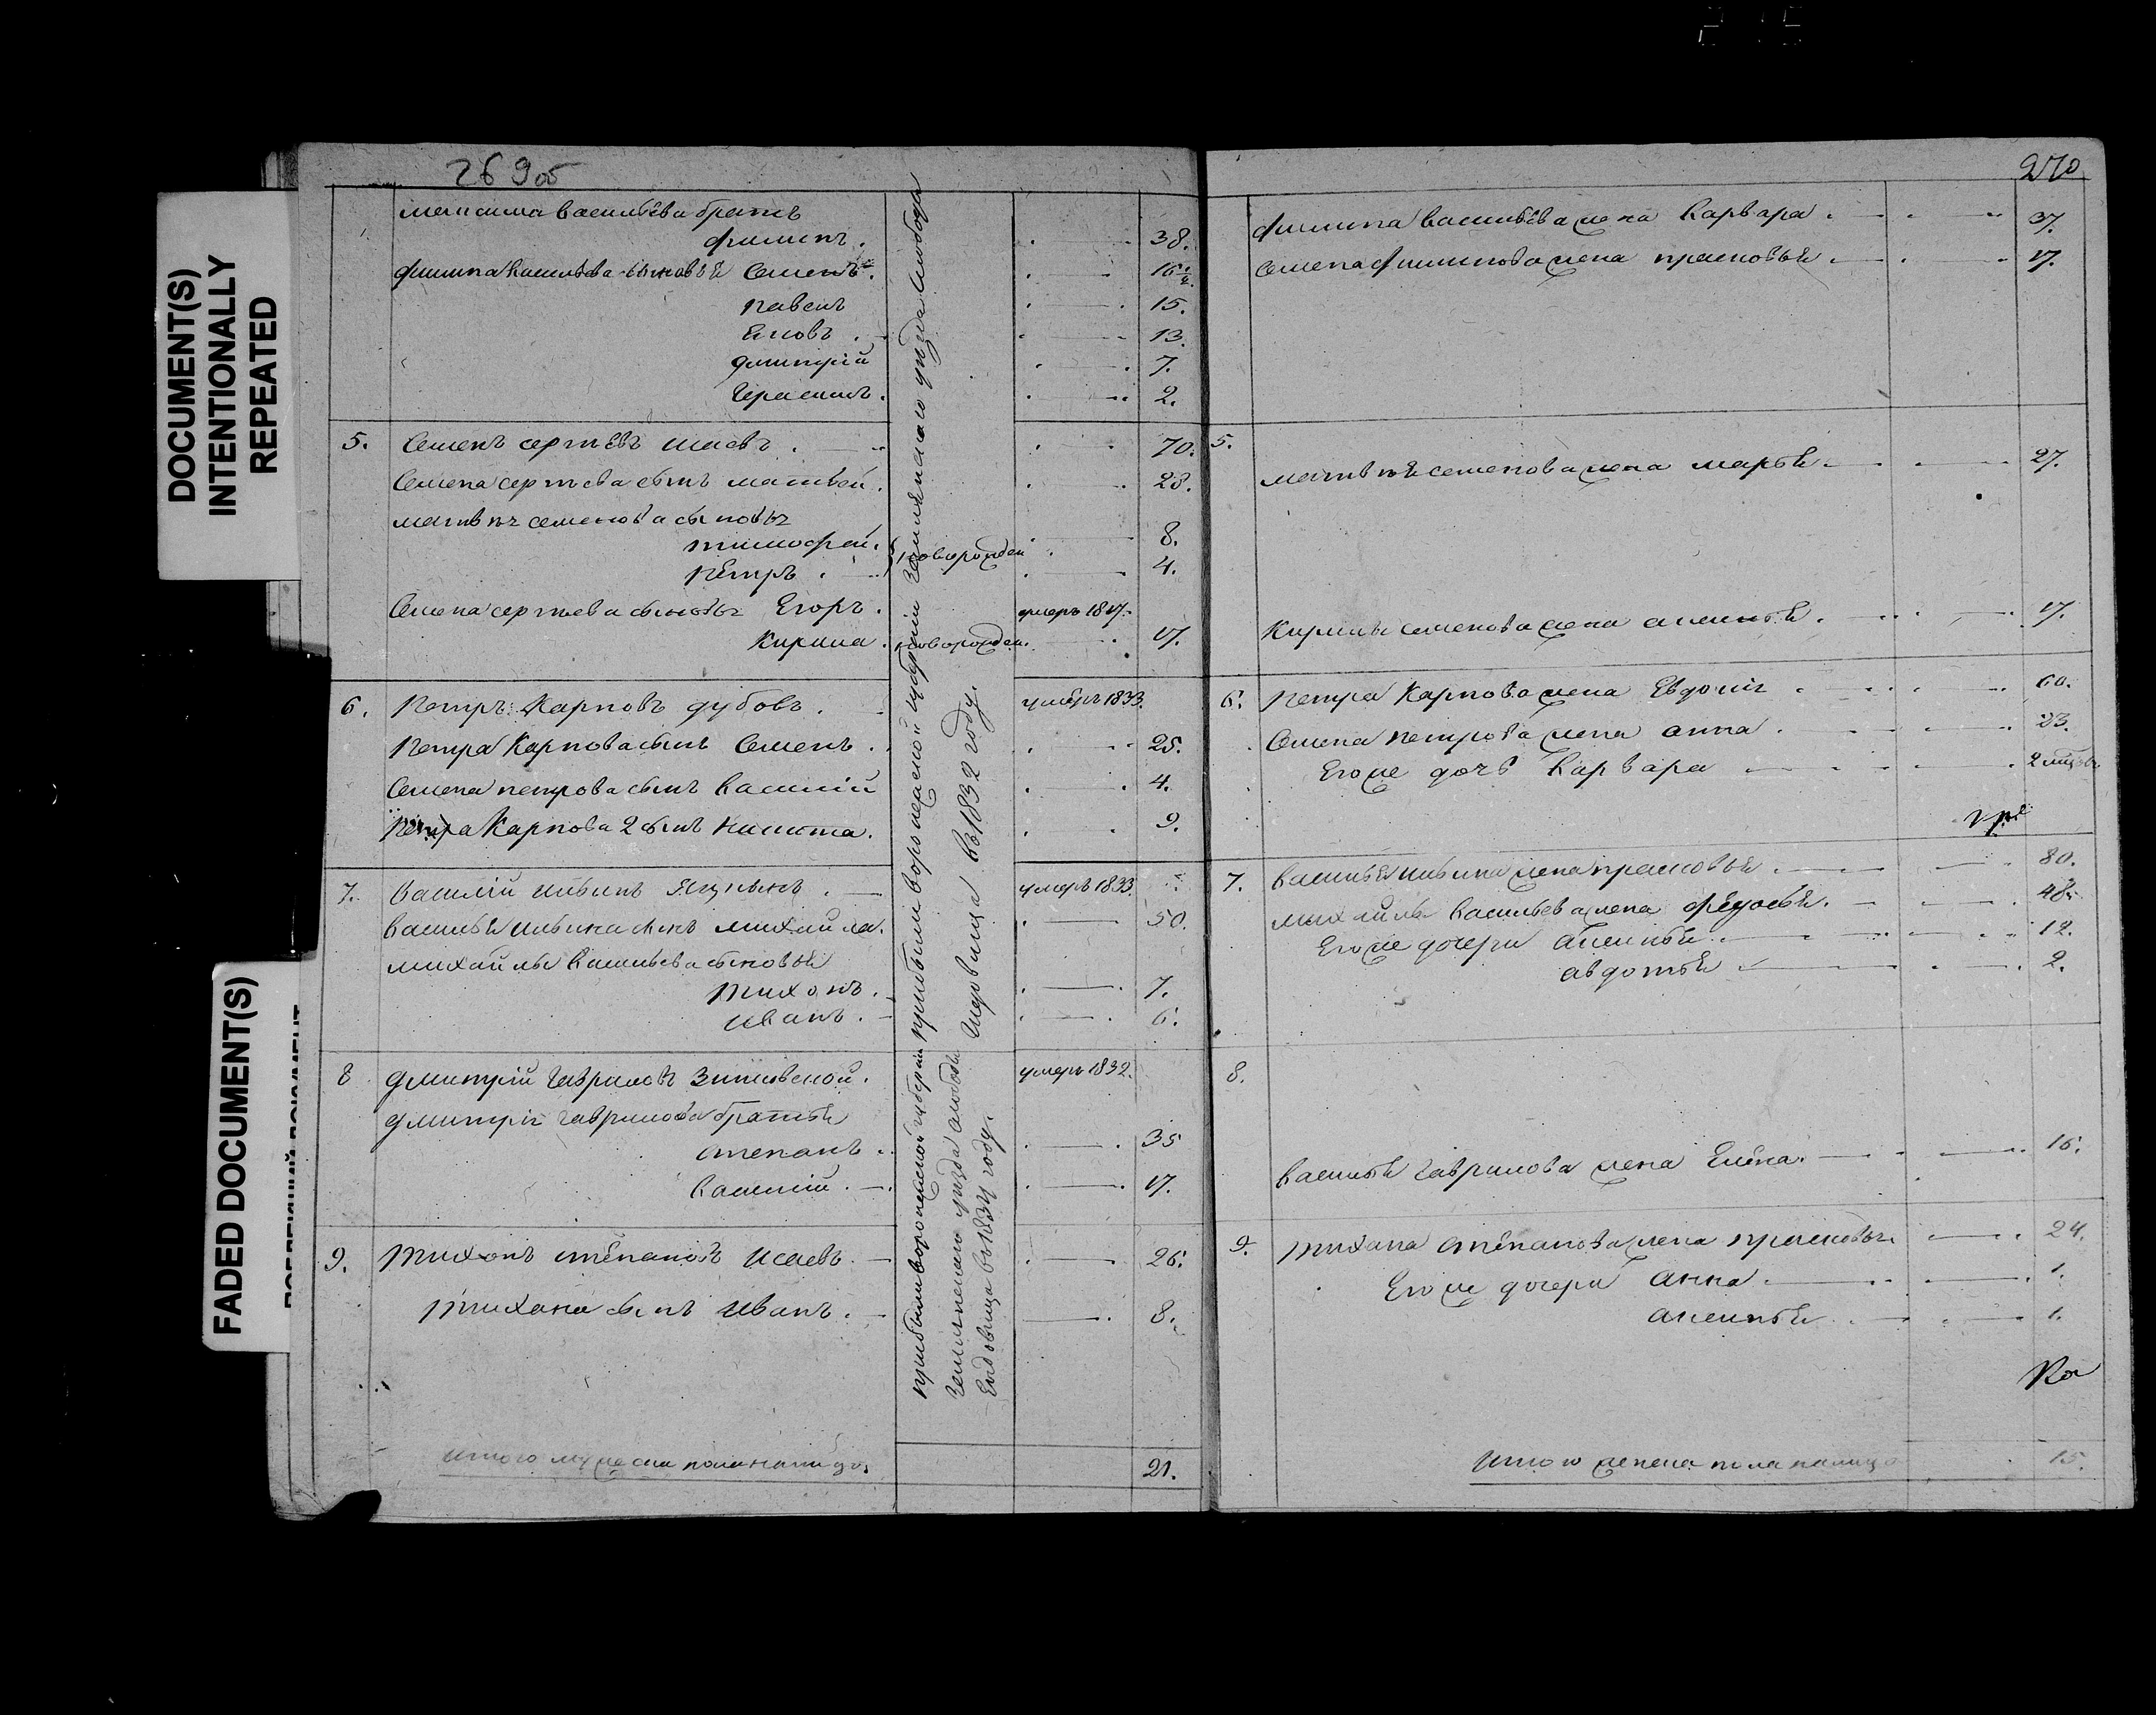 DOCUMENT(S)
INTENTIONALLY
REPEATED
FADED DOCUMENT(S)
269об
максима васильева братъ
филипъ. 38.
филипа васильева сыновья Семенъ. 16 1/2.
павелъ 15.
Яковъ. 13.
дмитрій 7.
Герасимъ. 2.
5. Семенъ сергѣевъ 70.
Семена сергѣева сынъ матвѣй. 28.
матвѣя семенова сыновья
тимофей. новорожден 8.
петръ. 4.
Семена сергѣева сыновья Егоръ. умеръ 1817.
Кирила. новорожден. 17.
6. петръ Карповъ дубовъ. умеръ 1833.
петра Карпова сынъ Семенъ. 25.
Семена петрова сынъ василій 4.
петра Карпова 2 сынъ никита. 9.
7. василій ильинъ умеръ 1833.
василья ильина сынъ михайла. 50.
михайлы васильева сыновья
тихонъ. 7.
иванъ. 6.
8. дмитрій гавриловъ умеръ 1832.
дмитрія гаврилова братья
степанъ. 35
василій. 17.
9. тихонъ степановъ исаевъ 26.
тихона сынъ иванъ. 8.
итого мужеска пола налицо 21.
прибыли воронежской губерніи Землянскаго уѣзда слобода
въ 1832 году.
прибыли воронежской губерніи
Землянскаго уѣзда слободы
Ендовища въ 1834 году.
270
филипа васильева жена варвара. 37.
семена филипова жена прасковья. 17.
5.
матвѣя семенова жена марья. 27.
Кирилы семенова жена аксинья. 17.
6. петра Карпова жена Евдокія 60.
Семена петрова жена анна. 23.
Его же дочь варвара
7. василья ильина жена прасковья. 80.
михайлы васильева жена федосья. 48.
Его же дочери аксинья. 12.
авдотья 2.
8.
василья гаврилова жена Елена. 16.
9. тихона степанова жена прасковья 24.
Его же дочери анна. 1.
аксинья 1.
итого женска пола налицо 15.